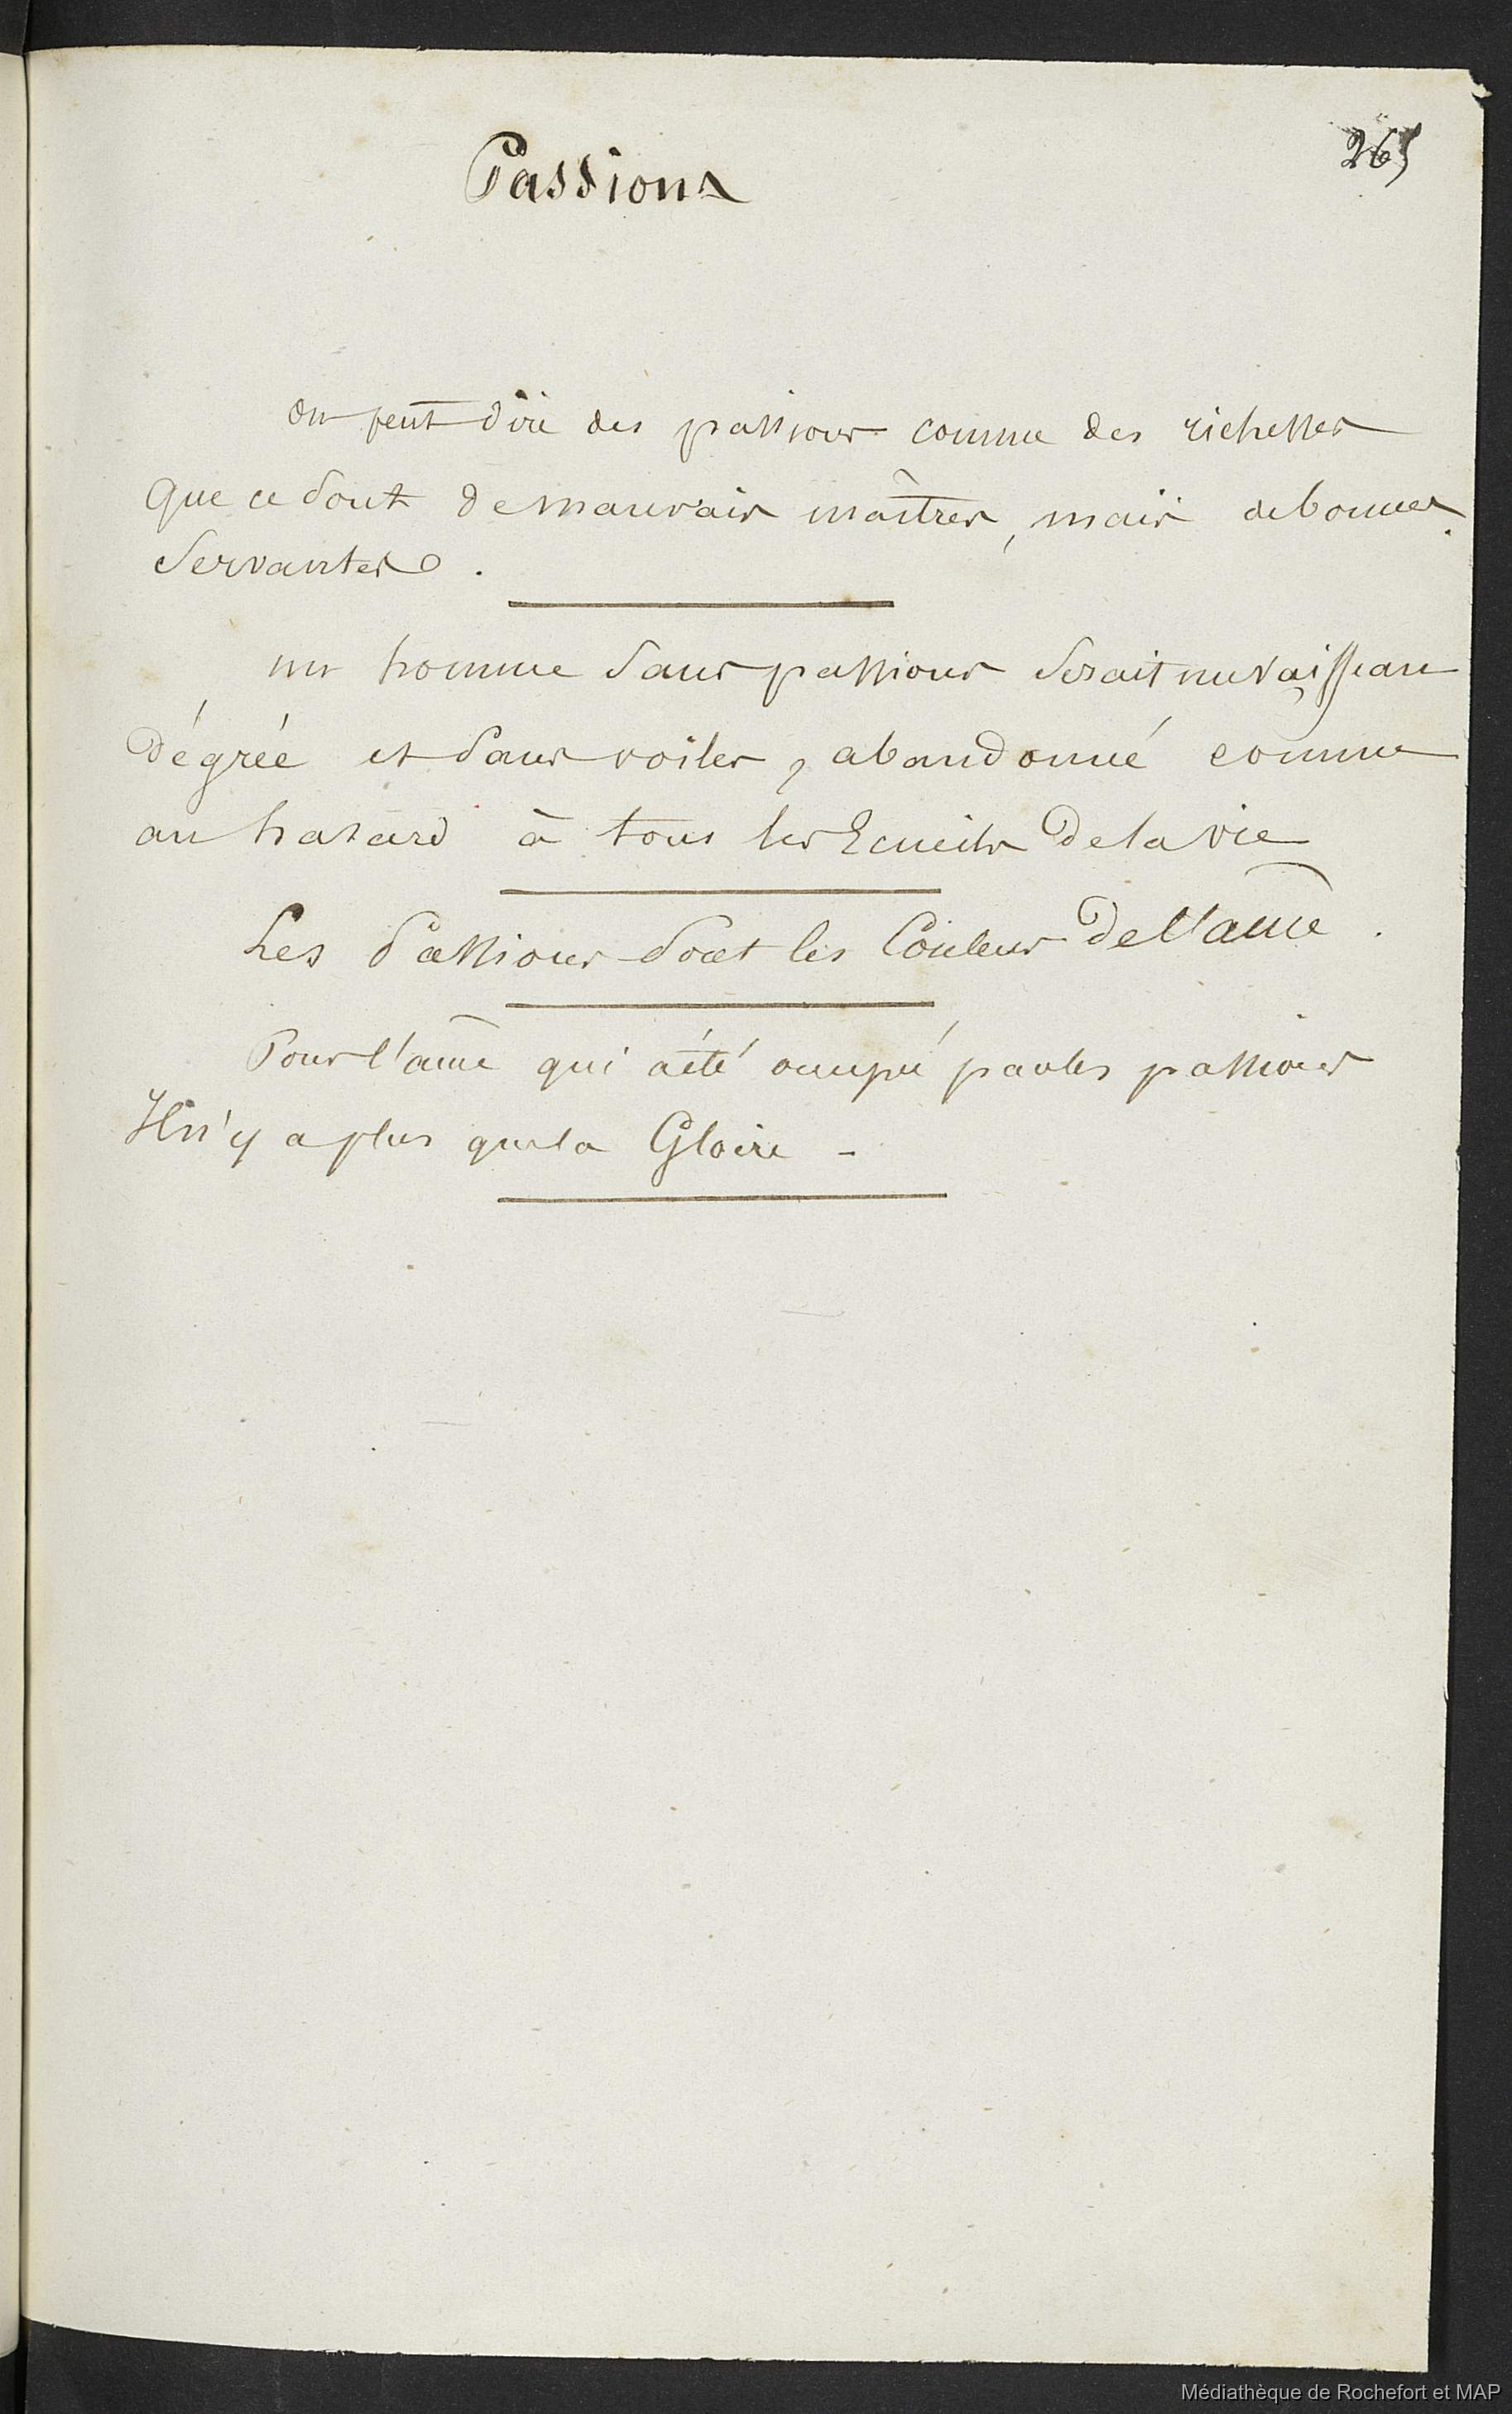 265
Passions
On peut dire des passions comme des richesses
que ce sont de mauvais maîtres, mais de bonnes
servantes.
un homme sans passions serait un vaisseau
dégréé et sans voiles, abandonné comme
au hasard à tous les Ecueils de la vie
Les Passions sont les Couleurs de l'âme.
Pour l'âme qui a été occupé par les passions
Il n'y a plus que la Gloire -
Médiathèque de Rochefort et MAP